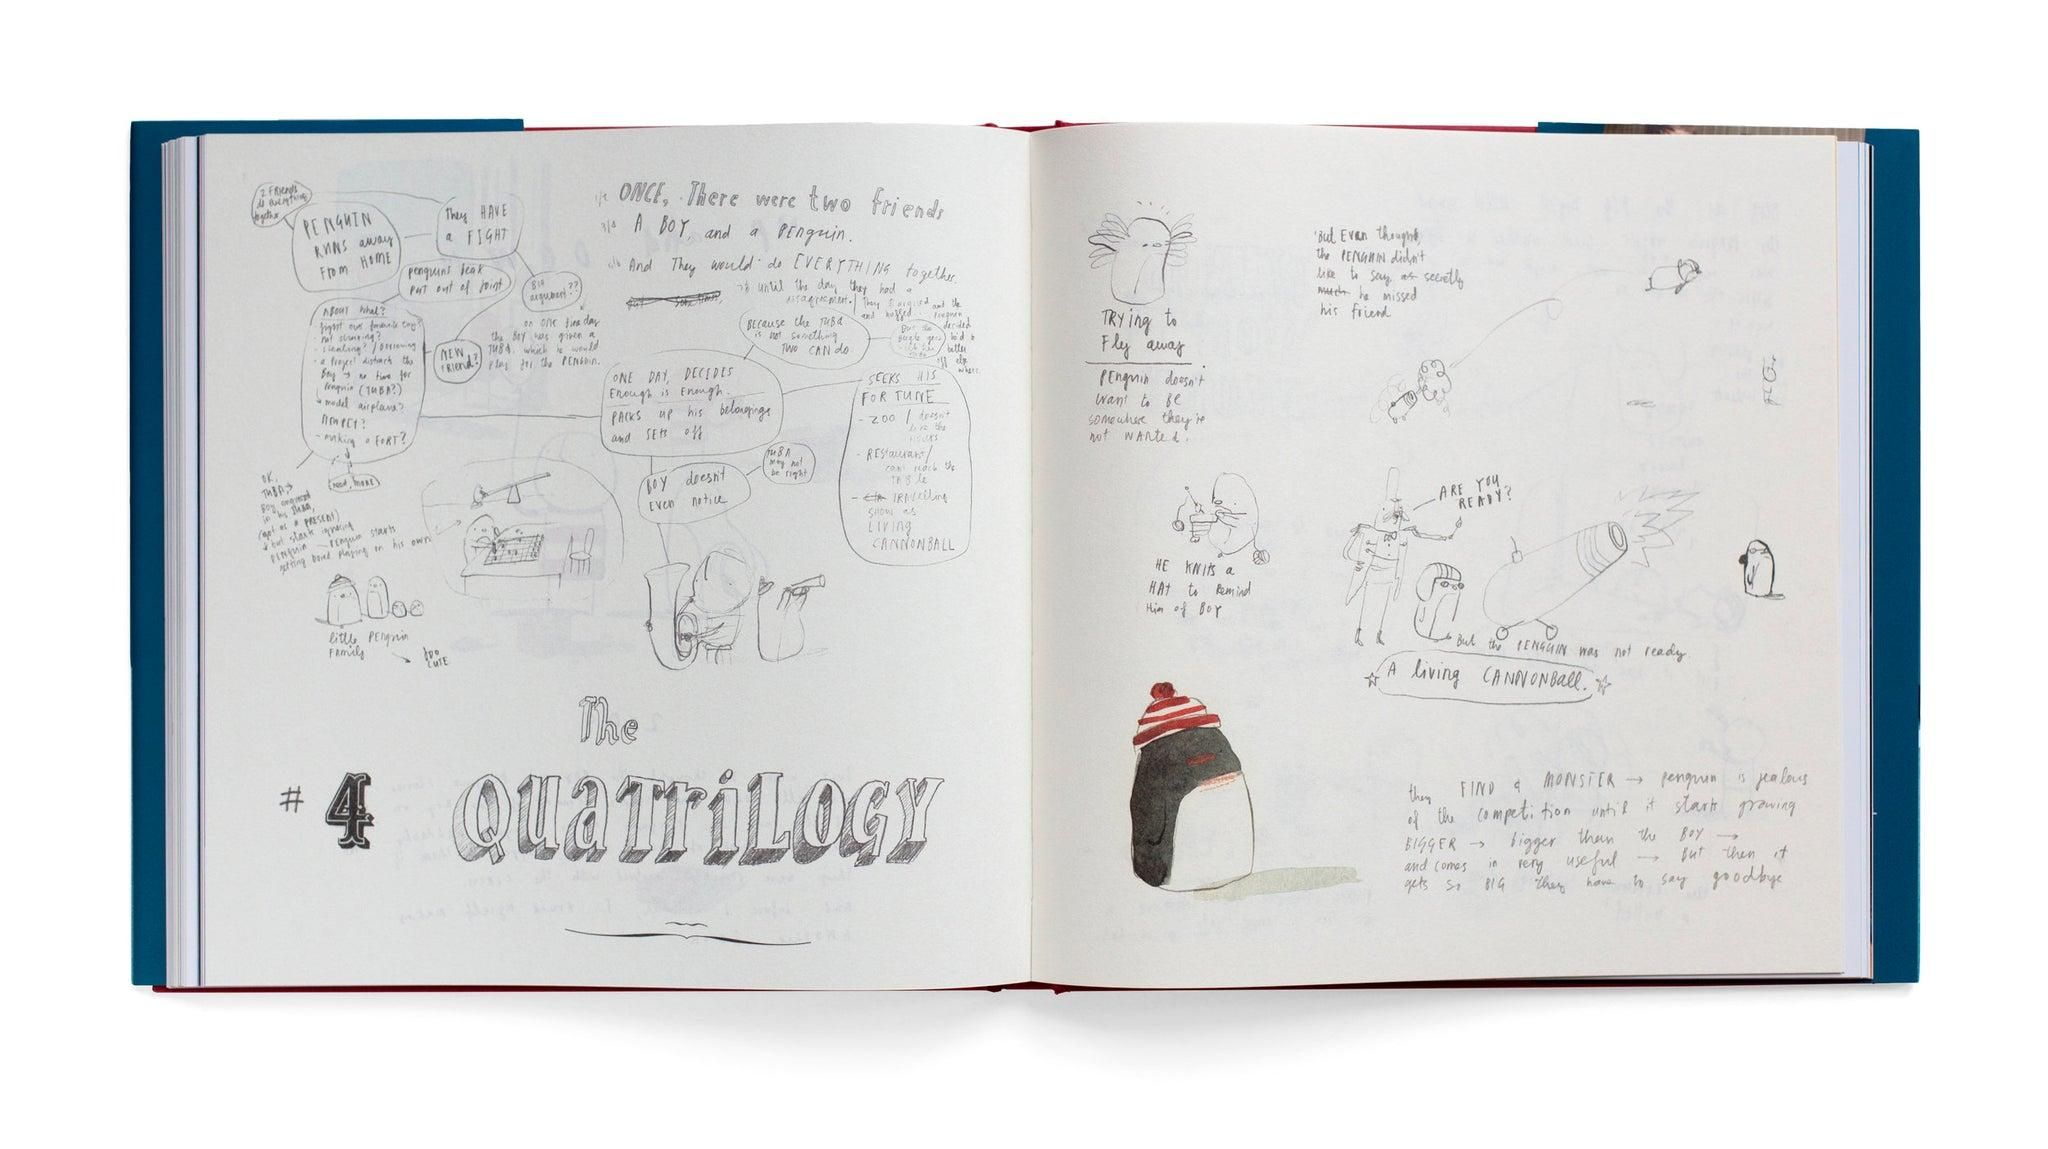 2 FRIENDS
do everything
together
PENGUIN
RUNS away
FROM HOME
they HAVE
a FIGHT
penguins beak
put out of joint
BIG
argument??
ABOUT what?
- fight over favourite toy?
- not sharing?
- stealing? / Borrowing
- a project distracts the
Boy → no time for
Penguin (TUBA?)
↳ model airplane?
- making a FORT?
NEW
FRIEND?
on ONE fine day
the BOY was given a
TUBA, which he would
play for the PENGUIN.
need more
OK,
TUBA →
Boy engrossed
in his TUBA,
(got as a PRESENT)
↓ but starts ignoring
PENGUIN - Penguin starts
getting bored playing on his own
little Penguin
FAMILY
too
CUTE
ONCE, There were two friends
A BOY, and a PENGUIN.
And They would do EVERYTHING together.
until the day they had a
disagreement.
BECAUSE the TUBA
is not something
TWO CAN do
ONE DAY, DECIDES
Enough is Enough.
PACKS up his belongings
and SETS off
BOY doesn't
EVEN notice
TUBA
may not
be right
SEEKS HIS
FORTUNE
- ZOO / doesn't
like the
- REStaurant/
cant reach the
TABLE
- TRAVElling
show as
LIVING
CANNONBALL
The
# 4 QUATRILOGY
TRYING to
Fly away
PENguin doesn't
want to BE
somewhere they're
not WANTEd.
'But Even though,
the PENGUIN didn't
like to say as secretly
much he missed
his friend
HE KNITS a
HAT to Remind
Him of BOY
ARE YOU
READY?
But the PENGUIN was not ready.
A living CANNONBALL.
they FIND a MONSTER → penguin is jealous
of the competition until it starts growing
BIGGER → bigger than the BOY →
and comes in very useful → But then it
gets so BIG they have to say goodbye